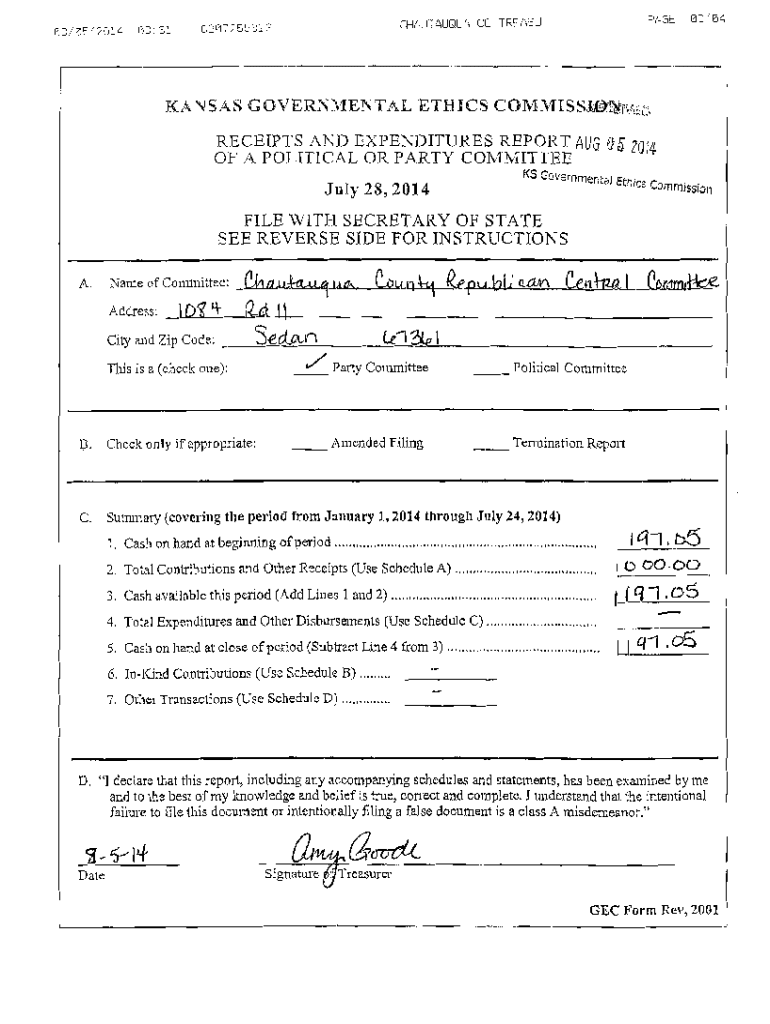 CHAUTAUQUA CO TREASU
PAGE
KANSAS GOVERNMENTAL ETHICS COMMISSION
RECEIPTS AND EXPENDITURES REPORT AUG 05 2014
OF A POLITICAL OR PARTY COMMITTEE
KS Governmental Ethics Commission
July 28, 2014
FILE WITH SECRETARY OF STATE
SEE REVERSE SIDE FOR INSTRUCTIONS
A. Name of Committee: Chautauqua County Republican Central Committee
Address: 1084 Rd 11
City and Zip Code: Sedan 67361
This is a (check one): ✓ Party Committee ____ Political Committee
B. Check only if appropriate: ____ Amended Filing ____ Termination Report
C. Summary (covering the period from January 1, 2014 through July 24, 2014)
1. Cash on hand at beginning of period ........ 197.05
2. Total Contributions and Other Receipts (Use Schedule A) ........ 1000.00
3. Cash available this period (Add Lines 1 and 2) ........ 1197.05
4. Total Expenditures and Other Disbursements (Use Schedule C) ........ —
5. Cash on hand at close of period (Subtract Line 4 from 3) ........ 1197.05
6. In-Kind Contributions (Use Schedule B) ........ -
7. Other Transactions (Use Schedule D) ........ -
D. "I declare that this report, including any accompanying schedules and statements, has been examined by me
and to the best of my knowledge and belief is true, correct and complete. I understand that the intentional
failure to file this document or intentionally filing a false document is a class A misdemeanor."
8-5-14 Amy Goode
Date Signature of Treasurer
GEC Form Rev, 2001